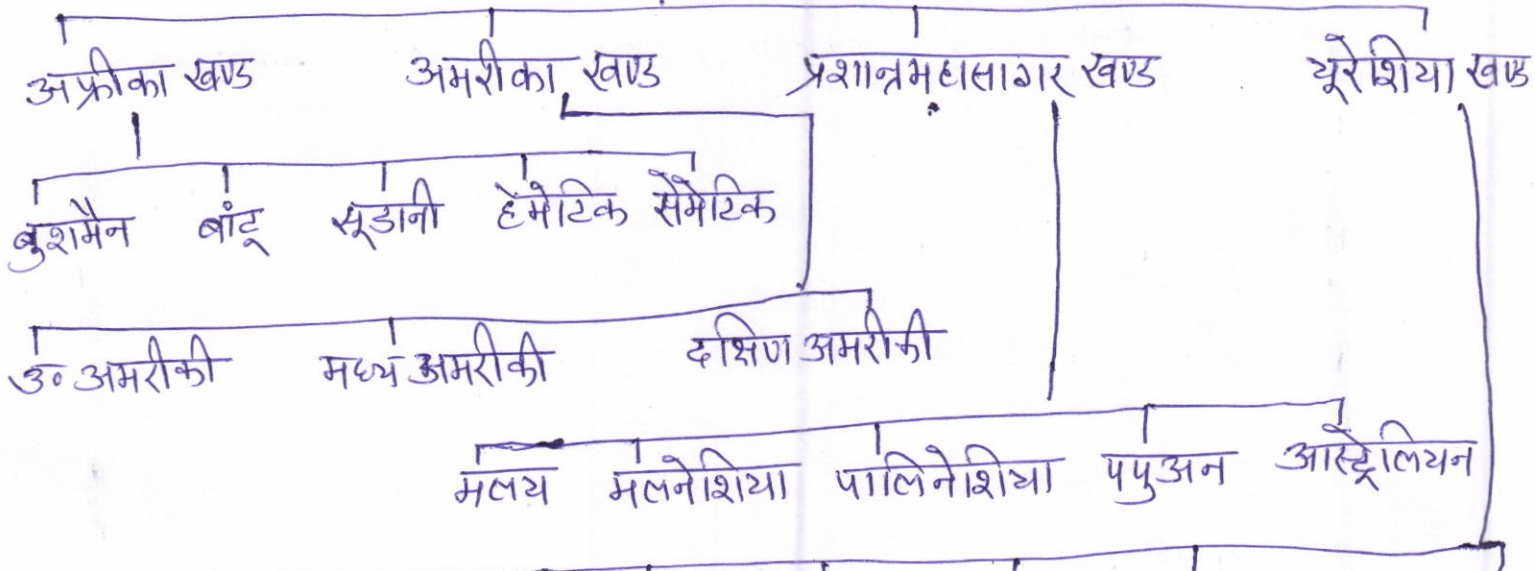 अफ्रीका खण्ड अमरीका खण्ड प्रशान्तमहासागर खण्ड यूरेशिया खण्ड
बुशमैन बांटू सूडानी हैमेटिक सेमेटिक
उ० अमरीकी मध्य अमरीकी दक्षिण अमरीकी
मलय मलनेशिया पालिनेशिया पपुअन आस्ट्रेलियन